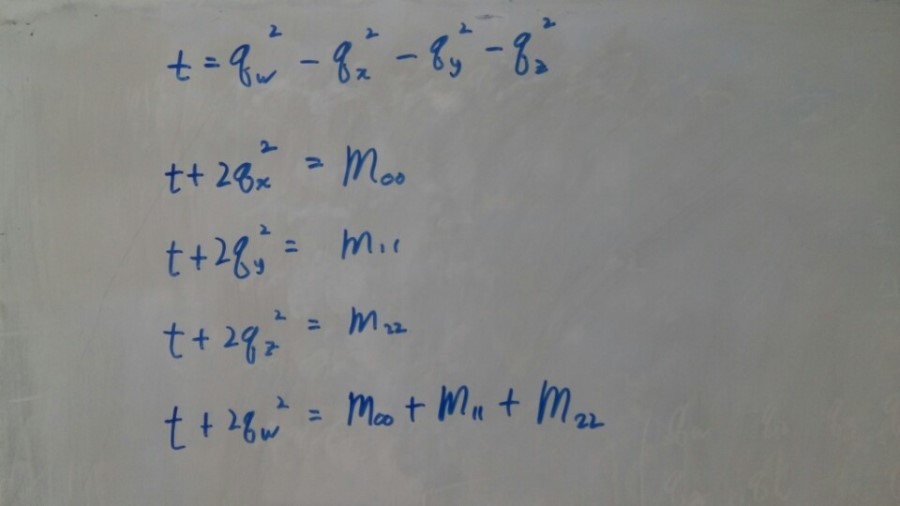 t = q_w² - q_x² - q_y² - q_z²
t + 2q_x² = m₀₀
t + 2q_y² = m₁₁
t + 2q_z² = m₂₂
t + 2q_w² = m₀₀ + m₁₁ + m₂₂